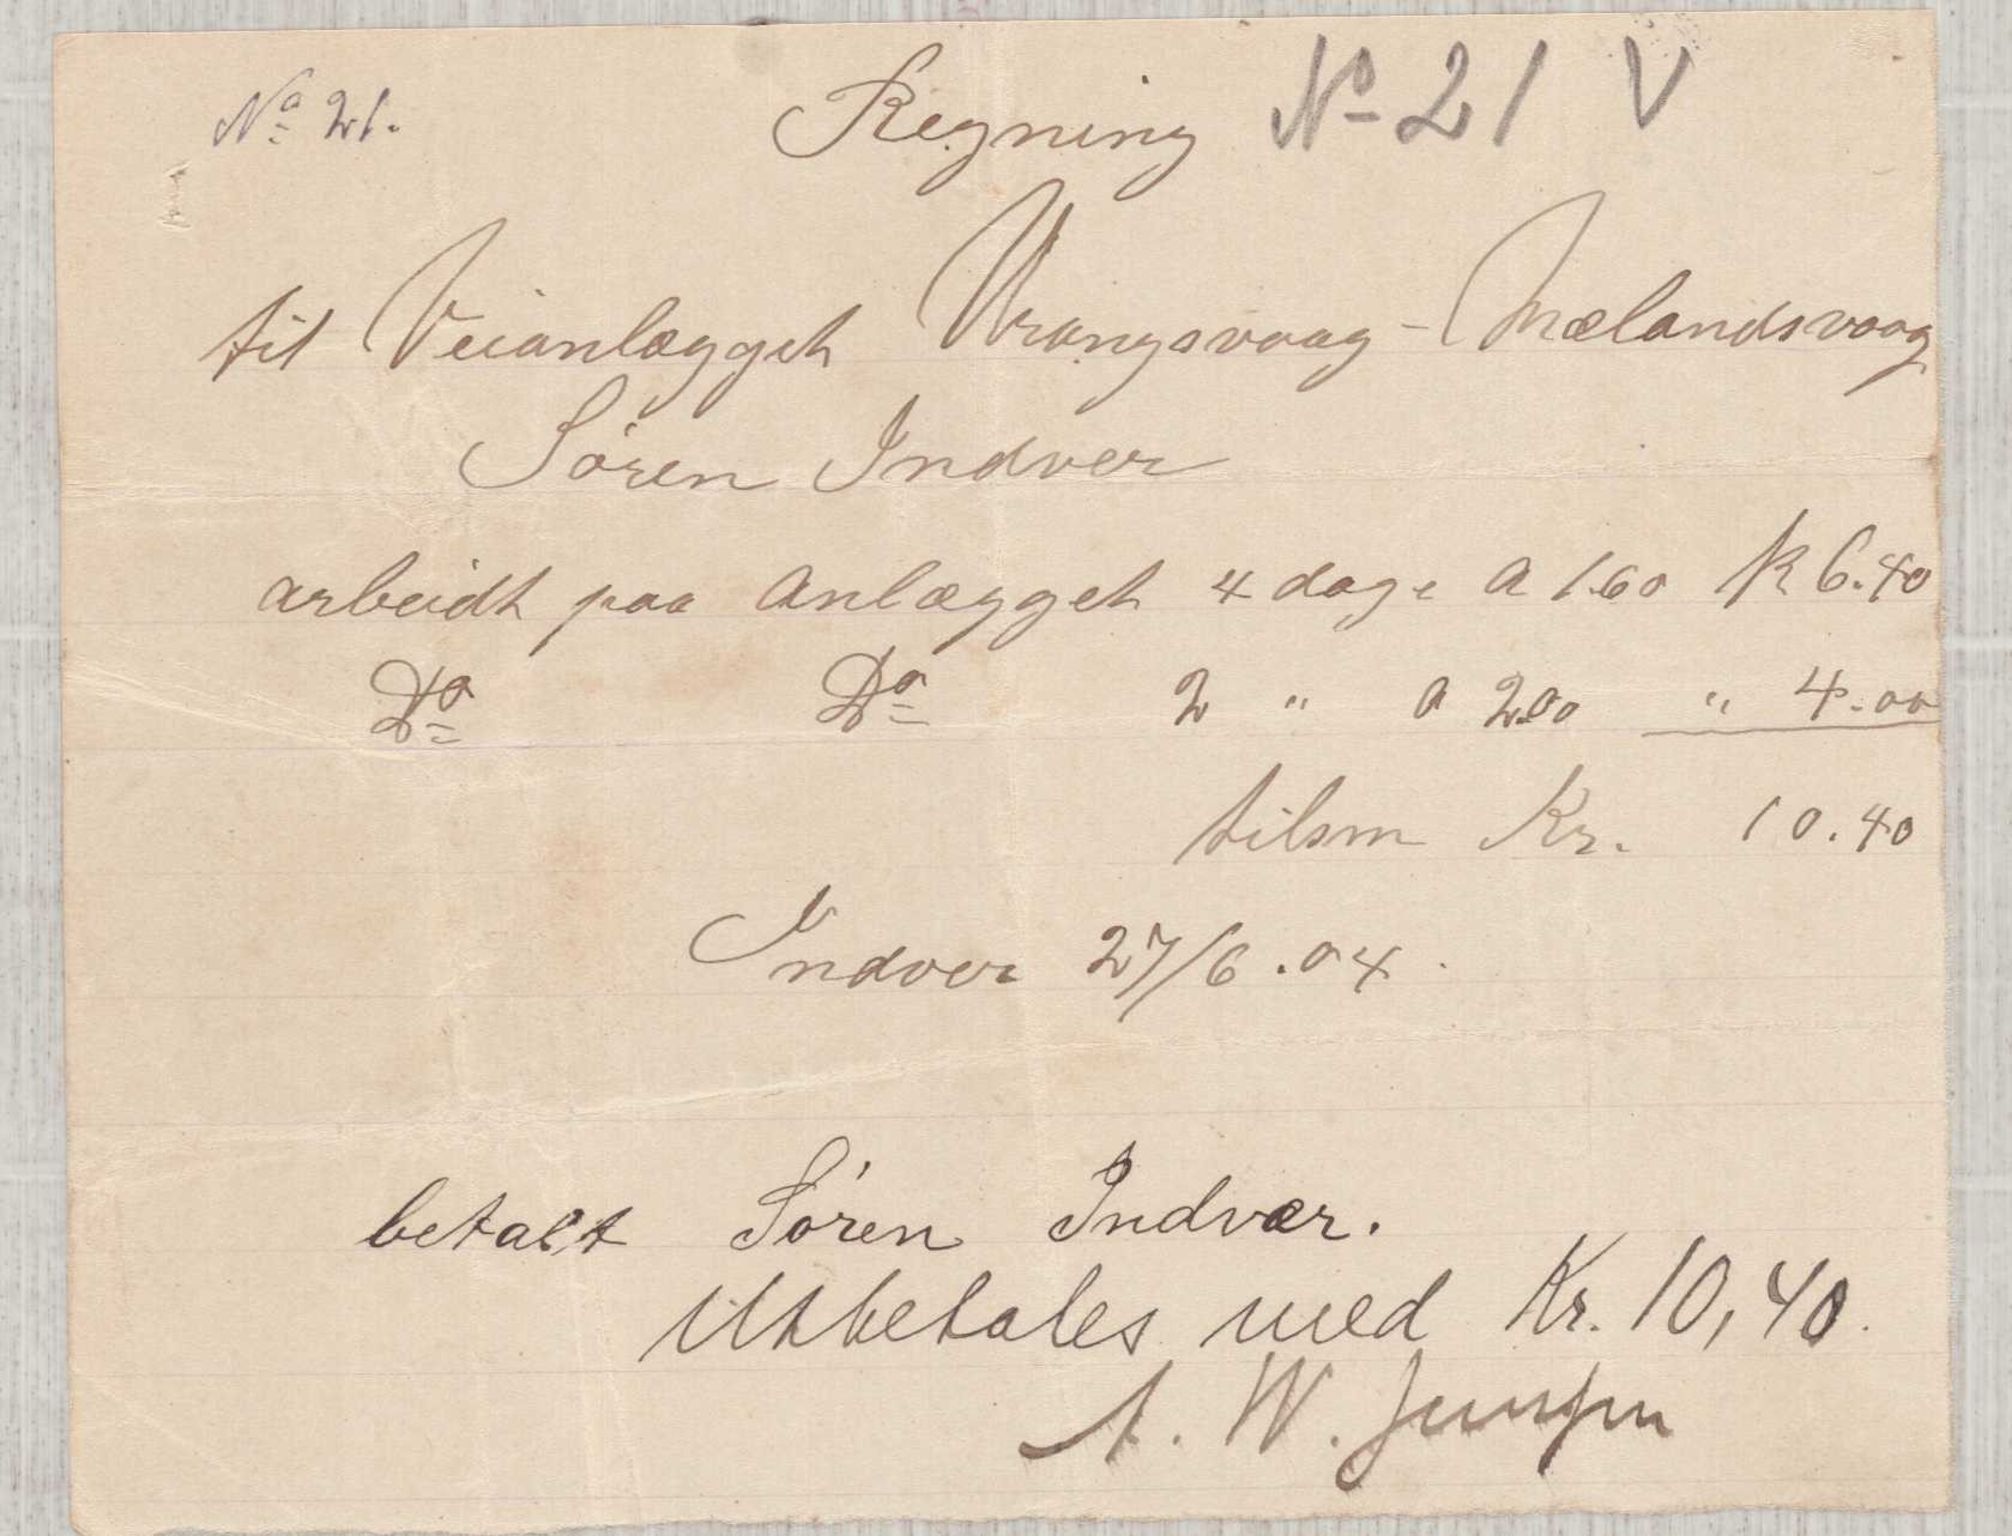 No 21. Regning No 21 V
til Veianlægget Vrangsvaag - Mælandsvaag
Søren Indver
arbeidt paa Anlægget 4 dage a 1.60 K 6.40
Do Do 2 " a 2.00 " 4.00
tilsm Kr. 10.40
Indver 27/6.04.
betalt Søren Indvær.
Utbetales med Kr. 10,40.
A. W. Jensen